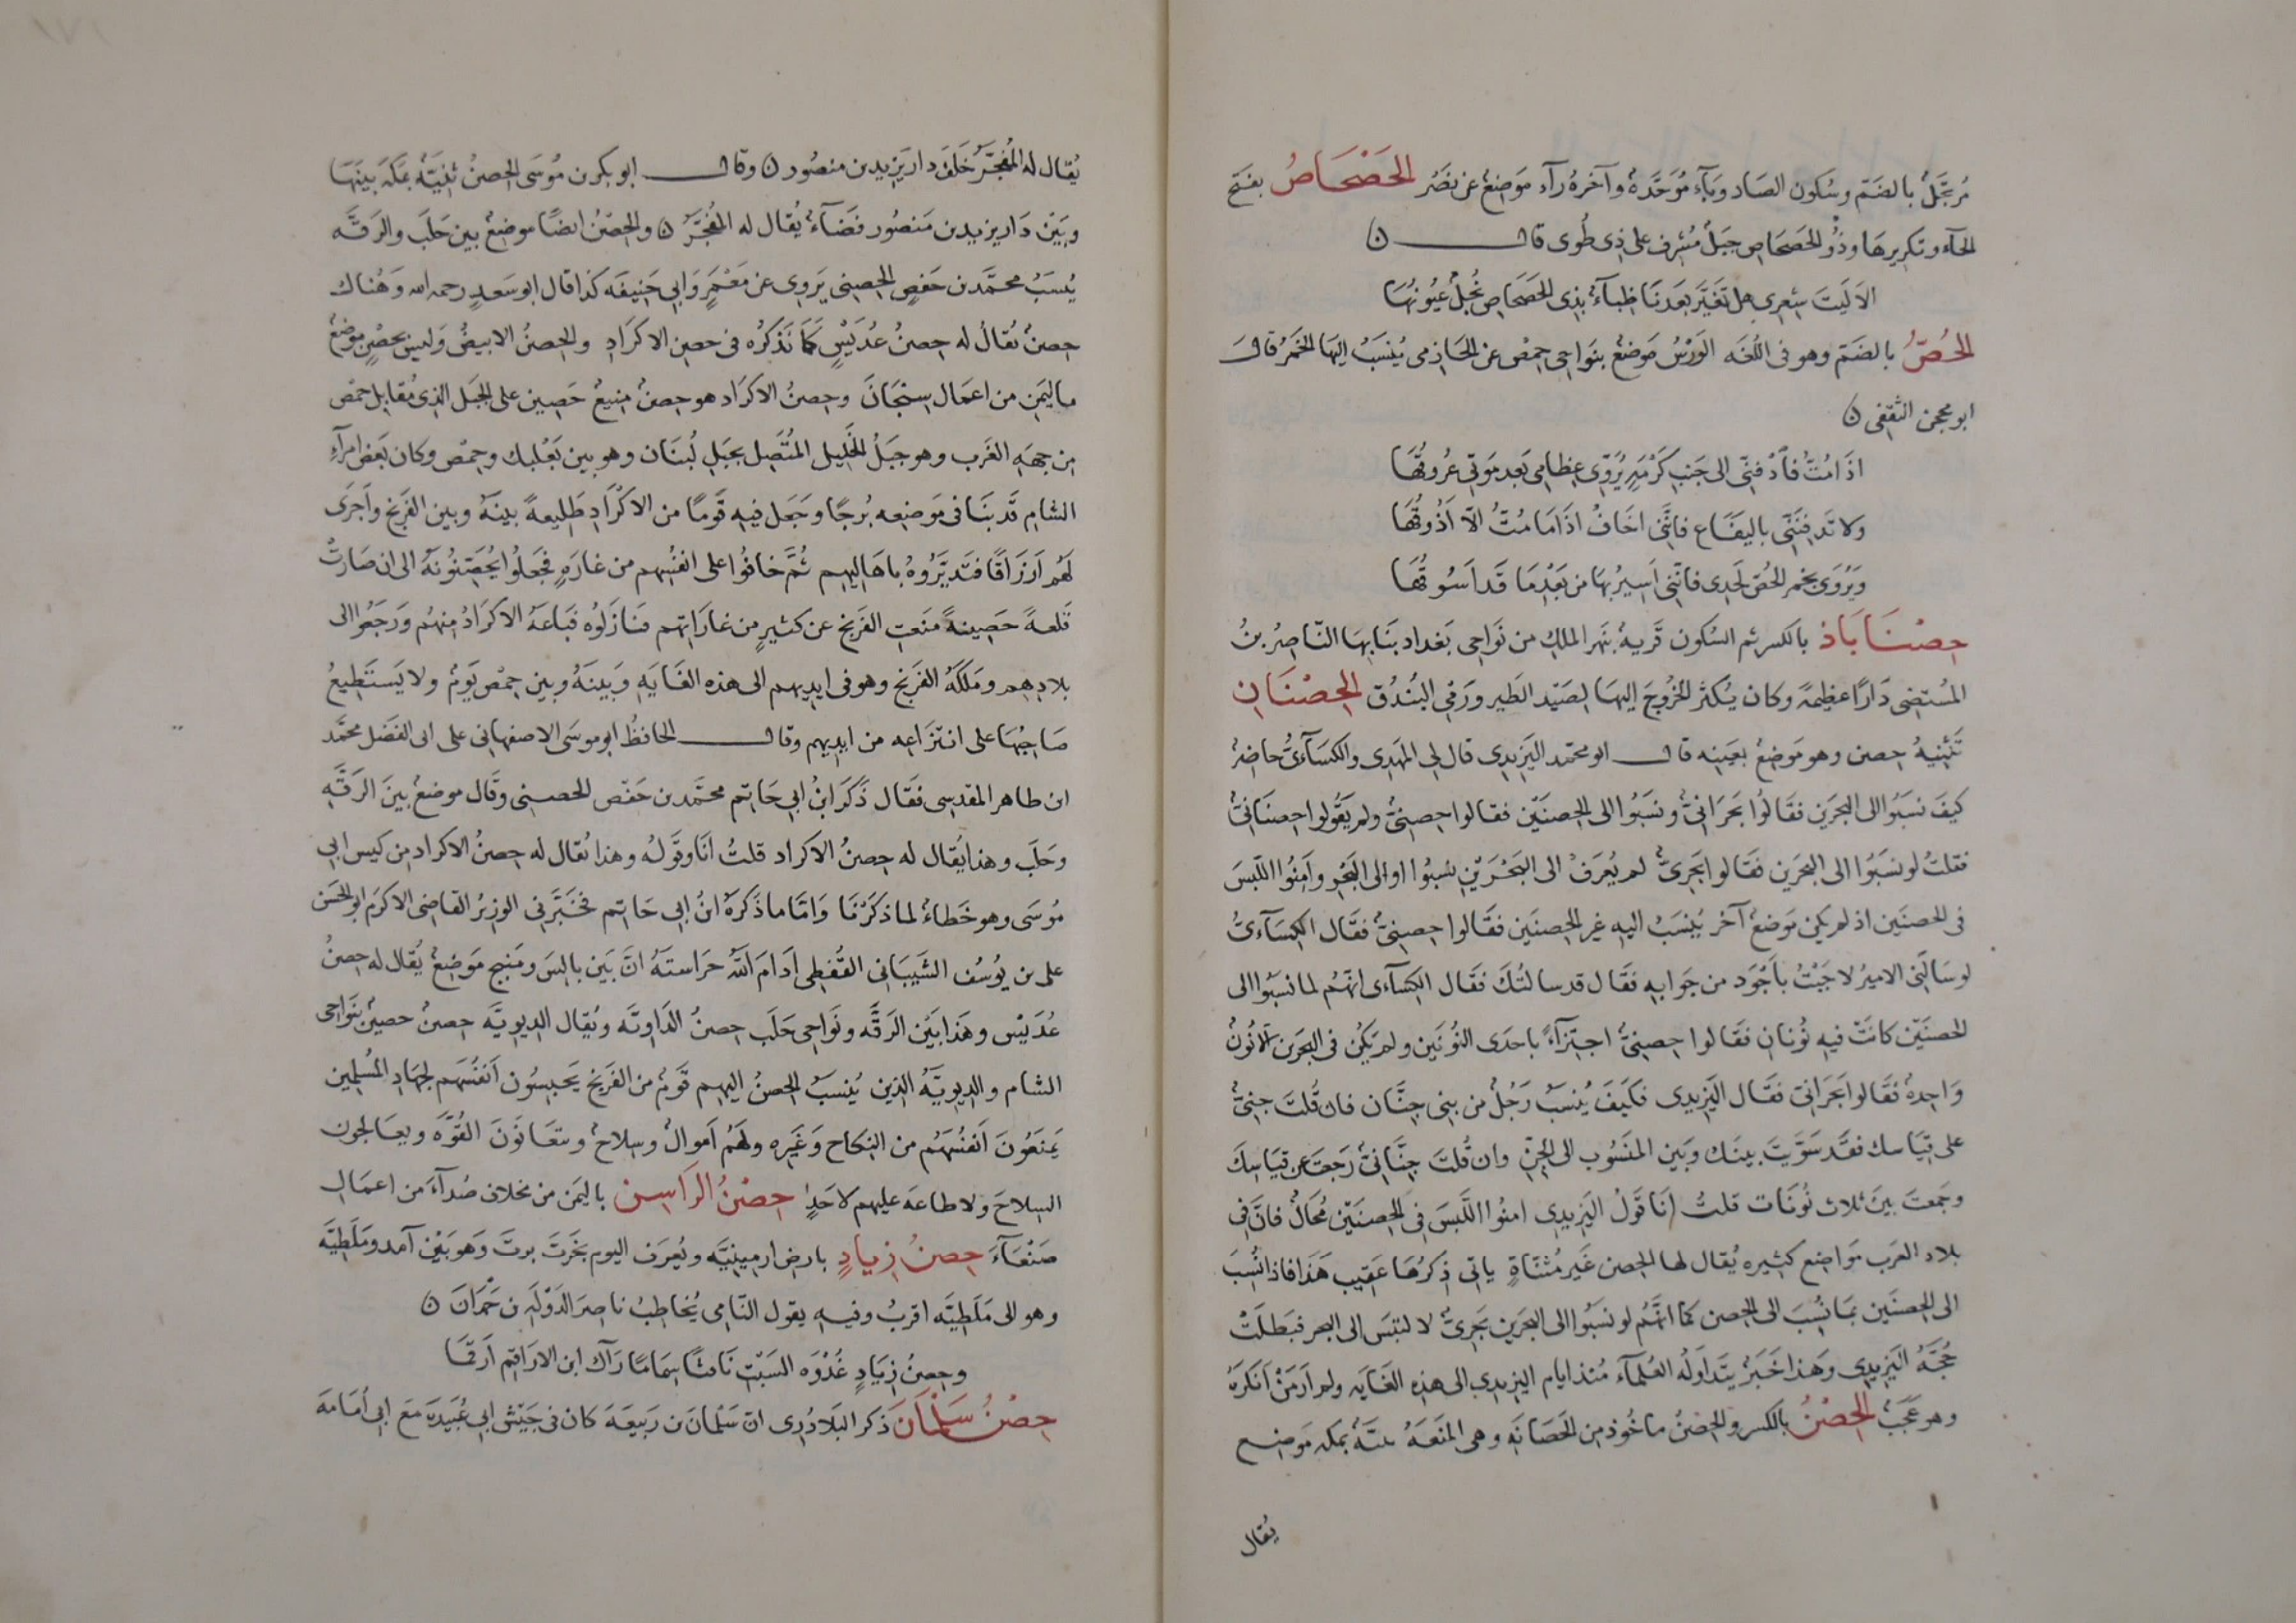 مُرتَجَلٌ بالضَمّ وسُكون الصَاد وَبآء مُوَحَّدَةٌ وآخرهُ رآء مَوَضِعٌ عن نصَرُ الحَصْحَاصُ بفتح
الحآء وتكريرها وذُو الحَصَحَاصِ جبَلٌ مُشرف على ذِى طُوى قال ن
الاَ لَيتَ شِعرى هل تَغَيَّر بَعدَنا ظِبآءٌ بذى الحَصحَاصِ نُجلٌ عيُونُهَا
الحُصُّ بالضَمّ وهو فى اللُغَه الوَرْسُ مَوضعٌ بنَواحى حمِصْ عن الحَازمى يُنسَبُ اليَها الخَمرُ قال
ابو محجن الثقفى ن
اذَا مُتُّ فاْدْفنّى الى جَنبِ كَرْمَةٍ يُرَوّى عِظامِى بَعد مَوتى عُروُقُهَا
ولا تَدفِنَنّى باليفَاع فانَّنى اخَافُ اذَا مَا مُتُّ الّا اَذُوقُهَا
وَيُروَى بخمر الحُصّ لَحدِى فانّنى اَسِيرُ بهَا من بَعْدِمَا قَد اَسُوقُهَا
حِصْنَا بَاذ بالكسر ثم السُكون قَريةٌ بنَهر الملك من نَواحى بَغداد بَنا بهَا النَاصِرُ بنُ
المُستضى دَارًا عظِيمَةً وكان يُكثر الخُروُجَ اليهَا لصَيد الطَير ورَمى البُندُق الحِصْنَانِ
تَثنِيةُ حِصن وهو مَوضعٌ بعَينِه قال ابو محمّد اليَزيدِى قال لى المهَدِى والكسَآءىُّ حاضرٌ
كيفَ نسَبُوا الى البحرَين فقَالُوا بَحرَانىٌّ ونسَبُوا الى الحِصنَيّن فقالوا حِصِنىٌّ ولم يَقُولوا حِصنَانىٌّ
فقلتُ لو نسَبُوا الى البحرَين فقَالوا بَحرِىٌّ لم يُعرَفْ الى البَحْرَيْنِ نسَبُوا او الى البَحْرِ وآمِنُوا اللَبسَ
فى الحصنَين اذ لم يَكن مَوضعٌ آخر يُنسَبُ اليه غير الحِصنَين فقَالوا حِصِنىٌّ فقَال الكِسَآءىُّ
لو سَالَنى الامِيرُ لاجَبْتُ باَجْوَد من جَوابه فقَال قد سالتُكَ فقَال الكِسآءى انهّمُ لما نسَبُوا الى
الحصنَيّن كانَتْ فيه نُونانِ فقَالوا حصِنىٌّ اجتِزآءً باحَدى النُونَين ولم يَكُن فى البحرَين الّا نُونٌ
وَاحِدةٌ فقَالوا بَحَرانى فقَال اليَزِيدى فكَيفَ يُنسَبُ رَجُلٌ من بنى جِنَّان فان قُلتَ جِنىٌّ
على قيَاسك فقَد سَوّيتَ بينَك وبَين المنسُوب الى الجِنّ وان قُلتَ جِنَّانىٌّ رَجعتَ عن قيَاسِكَ
وجمَعتَ بينَ ثلاث نُونَات قلتُ انَا قَولُ اليَزِيدِى امنُوا اللَبسَ فى الحِصنَيّن مُحَالٌ فانّ فى
بلاد العرَب مَواضِع كثيره يُقال لها الحِصن غَير مُثنّاةٍ ياتى ذِكرُهَا عَقِيب هَذا فاذا نُسِبَ
الى الحِصنَين بمَا نُسِبَ الى الحِصن كمَا انّهُم لو نسَبُوا الى البحرَين بَحرِىٌّ لالتبَس الى البحر فبَطلَتْ
حُجَّةُ اليَزِيدِى وَهَذا خَبَرٌ يتَدَاوَلُه العُلمآء مُنذ ايام اليزيدى الى هذِه الغَايه ولم اَرَ مَنْ اَنكَرَهُ
وهو عَجَبٌ الحِصْنُ بالكسر والحِصْنُ ماخُوذ من الحَصَانَه وهى المنَعَةُ ثنيَّةٌ بمكه مَوضِع
يُقال
يُقال له المُفجَّرُ خَلفَ دار يَزيد بن منصُور ن وقال ابو بكر بن مُوسَى الحِصنُ ثنِيَّةٌ بمَكَه بينَهَا
وبَينْ دَار يزيد بن مَنصُور فضَآءٌ يُقال له المُفجَّرُ ن والحِصْنُ ايضًا موضِعٌ بين حَلَبَ والرَقَّه
يُنسَبُ محمَّد بن حَفصٍ الحِصِنى يَروِى عن مَعْمَرٍ وَابى حَنِيفَه كذا قال ابو سَعدٍ رحمه الله وَهُناك
حِصنٌ يُقالُ له حِصنُ عُدَيْسٍ كمَا نَذكرُه فى حصن الاكرَادِ والحِصنُ الابيَضُ وَليسَ بحِصْنٍ مَوضِعٌ
باليَمن من اعمَال سِنْحَانَ وحِصنُ الاكرَاد هو حِصنٌ منِيعٌ حَصِين على الجبَل الذِى مُقابِل حِمص
مِن جهَةِ الغَرب وهو جَبَلُ الجَلِيل المُتَّصِل بجَبَلِ لُبنَان وهو بين بَعْلبك وحِمْص وكان بَعض امرآءِ
الشام قَد بَنَا فى مَوضِعه بُرجًا وجَعل فيه قَومًا من الاكرَادِ طَلِيعةً بينَهُ وبين الفَرنج واَجرَى
لهَم اَرزَاقًا فتَديَّرُوهُ باهَاليهم ثُمَّ خافوُا على انفسُهم من غارَةٍ فجعَلُوا يُحَصّنُونَهُ الى ان صَارَتْ
قَلعةً حَصِينةً مَنَعت الفَرنج عن كثيرٍ من غارَاتِهم فنَازَلُوه فبَاعَهُ الاكرَادُ مِنهُم وَرَجَعُوا الى
بلادِهِم ومَلكَهُ الفَرَنج وهو فى ايديهم الى هذه الغَايه وَبينَهُ وبين حِمْصَ يَومٌ ولا يَستَطِيعُ
صَاحِبُهَا على انتزَاعِه من ايديهم وقال الحافظُ ابو موسَى الاصفهانى على ابى الفَضل محمَّد
ابن طاهر المقدسى فقَال ذَكرَ ابنُ ابى حَاتم محمَّد بن حَفّص الحصنى وقَال موضعٌ بينَ الرَقَّه
وحَلَب وهذا يُقال له حِصنُ الاكراد قلتُ انَا وقَولُه وهذا يُقال له حِصنُ الاكراد مِن كيس ابى
مُوسَى وهو خَطاءٌ لما ذكَرْنا وَامَّا ماذَكرَهُ ابنُ ابى حَاتم فخَبَّرنى الوزيرُ القاضِى الاكرَم ابو الحَسَن
على بن يُوسُف الشَيبَانى القِفطى اَدَامَ اللهُ حَرَاستَهُ انَّ بَين بالِسَ ومَنبِج مَوضِعٌ يُقال له حِصنُ
عُدَيسْ وهَذا بَين الرَقّه ونَواحِى حَلَب حِصنُ الدَاوِيَّه ويُقال الديويَّه حِصنٌ حصينٌ بنَواحِى
الشام والديويّهُ الذين يُنسَبُ الحصنُ اليهم قَومٌ من الفَرنج يَحبسُون اَنفسُهَم لجهَادِ المُسلمين
يَمنعُونَ اَنفسُهَمُ من النكاح وَغَيرِه ولهَمُ اَموالٌ وسِلاحٌ ويتعَانَونَ القُوَّه ويعَالجُون
السِلاحَ ولا طاعه عليهم لاحَدٍ حِصْنُ الرَاسِن باليَمن من مخلاف صُدآءَ من اعمَال
صَنْعَآءَ حِصنُ زِيادٍ بارض ارمينيَّه ويُعرَف اليوم بخَرتَ برتَ وَهو بَيْن آمد ومَلَطِيَّه
وهو الى مَلَطِيَّه اقربُ وفيه يقول النّامى يُخاطبُ ناصِر الدَولَه بن حَمْدَانَ ن
وحِصنُ زيَادٍ غُدْوَه السَبّتِ نَافثًا سِمَامًا رَآك ابن الارَاقم اَرقَمَا
حِصْنُ سَلْمَانَ ذكر البَلاذُرى انّ سَلمَان بن رَبيعَة كان فى جَيْش ابى عُبَيدَة مَع ابى اُمَامَة